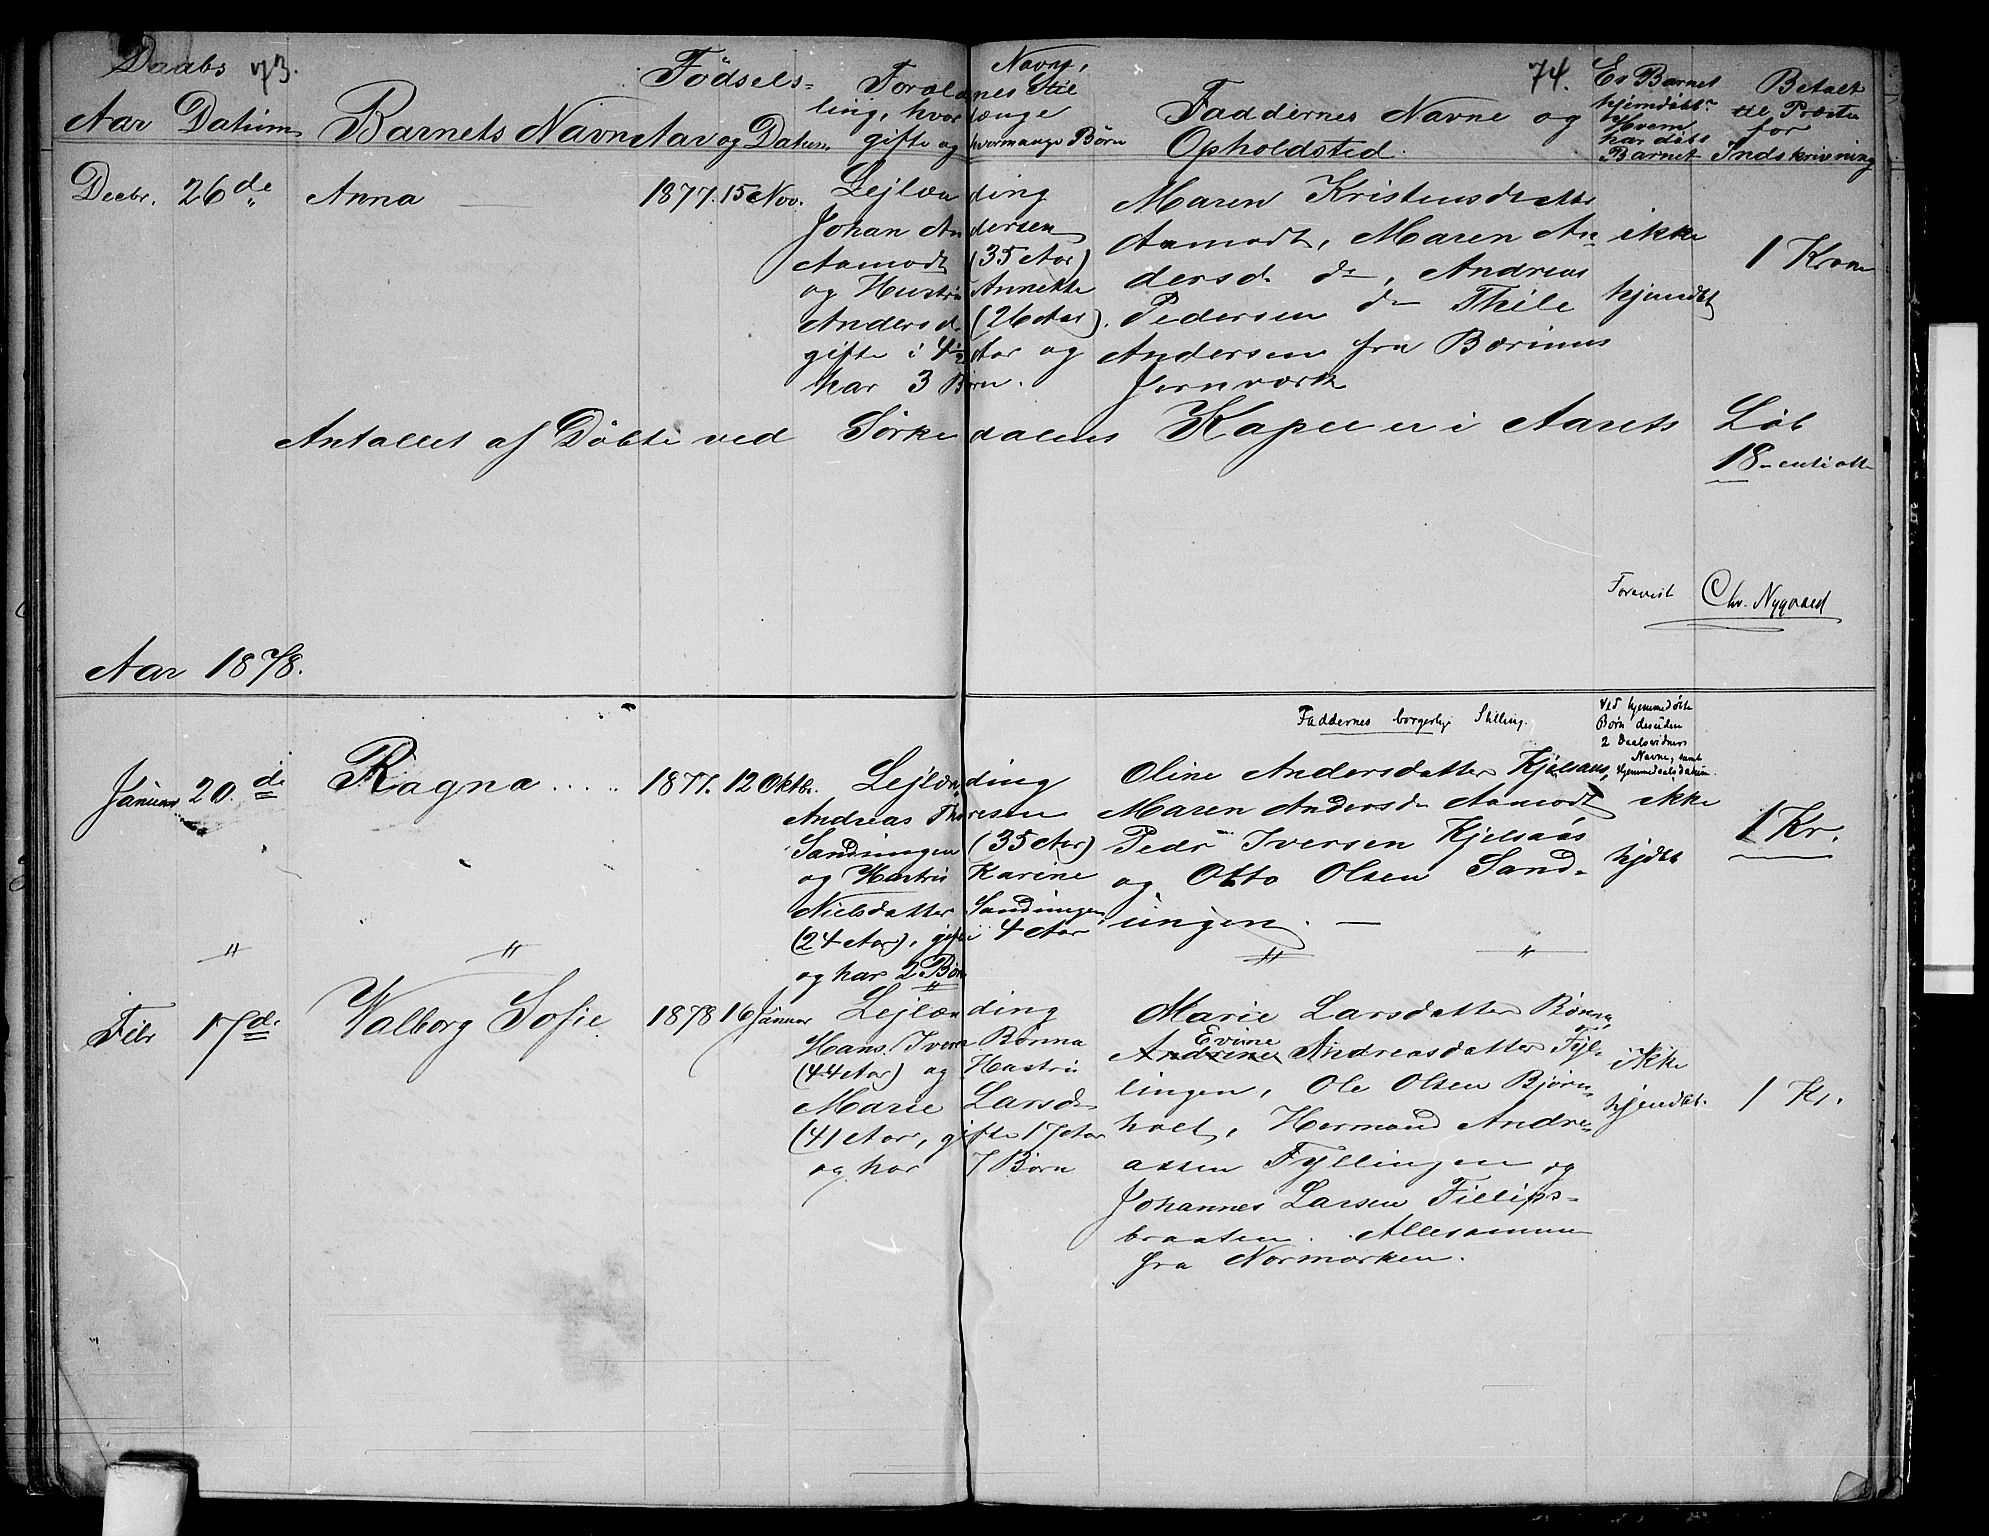 Daabs 73.
Aar Datum
Barnets Navn
Fødsels-
Aar og Datum
Forældrenes Navne, Stil
ling, hvor længe
gifte og hvormange Børn
74.
Faddernes Navne og
Opholdsted.
Er Barnet
hjemdøbt
Hvem
har døbt
Barnet
Betalt
til Præsten
for
Indskrivning
Decbr. 26de Anna 1877. 15 Nov.
Lejlænding
Johan Andersen
Aamodt (35 Aar)
og Hustru Annette
Andersd. (26 Aar).
gifte i 4½ Aar og
har 3 Børn.
Maren Kristensdatter
Aamodt, Maren An
dersd. do, Andreas
Pedersen do Thile
Andersen fra Bærums
Jernværk
ikke
hjemdbt
1 Krone
Antallet af Døbte ved Sørkedalens Kapel er i Aarets Løb
18 - enti otte
Forevist Chr. Nygaard
Aar 1878.
Faddernes borgerlige Stilling.
Ved hjemmedøbte
Børn desuden
2 Daabsvidners
Navne, samt
Hjemmedaabsdatum.
Januar 20.de Ragna..... 1877. 12 Oktbr.
Lejlænding
Andreas Thoresen
Sandungen (35 Aar)
og Hustru Karine
Nielsdatter Sandungen
(24 Aar), gifte i 4 Aar
og har 2 Børn
Oline Andersdatter Kjelsaas,
Maren Andersdr Aamodt
Pedr Iversen Kjelsaas
og Otto Olsen Sand-
ungen. —
ikke
hjdbt
1 Kr.
" " " "
"
Febr 17de Valborg Sofie 1878 16 Januar
Lejlænding
Hans Iversen Bonna
(44 Aar) og Hustru
Marie Larsdr
(41 Aar, gifte 17 Aar
og har 7 Børn
Marie Larsdatter Bonna,
Evine
Andrine Andreasdatter Fyl-
lingen, Ole Olsen Bjørn-
holt, Hermand Andre-
assen Fyllingen og
Johannes Larsen Fillips-
braaten. Allesammen
fra Normarken.
ikke
hjemdbt.
1 Kr.